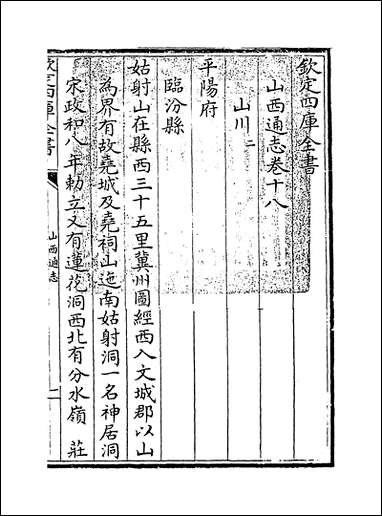 欽定四庫全書
山西通志卷十八
山川二
平陽府
臨汾縣
姑射山在縣西三十五里冀州圖經西入文城郡以山
為界有故堯城及堯祠山迤南姑射洞一名神居洞
宋政和八年勅立又有蓮花洞西北有分水嶺　莊
欽定四庫全書
山西通志